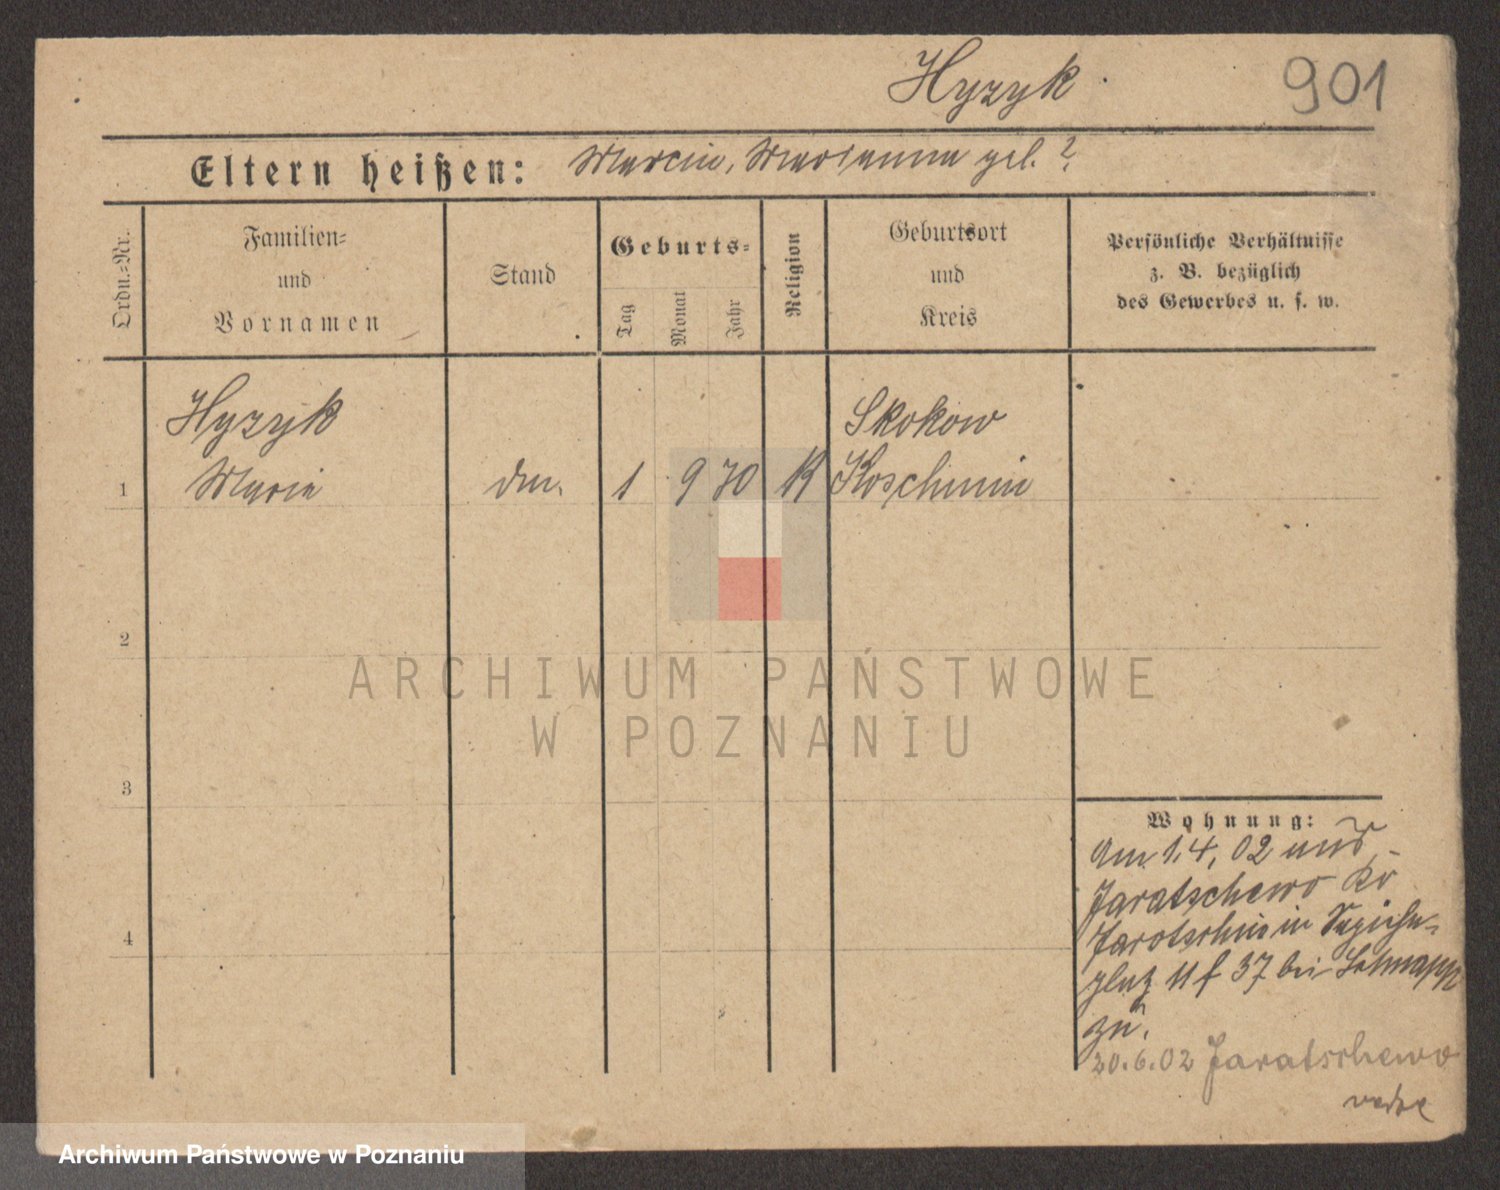 Hyzyk
901
Eltern heißen: Marcin, Marianna geb. ?
Ordn.=Nr.
Familien=
und
Vornamen
Stand
Geburts=
Tag
Monat
Jahr
Religion
Geburtsort
und
Kreis
Persönliche Verhältnisse
z. B. bezüglich
des Gewerbes u. s. w.
Hyzyk
Skokow
1 Maria 1 9 70 K Koschmin
2
ARCHIWUM PAŃSTWOWE
W POZNANIU
3
Wohnung:
Am 1.4.02 aus
Jaratschewo Kr
Jarotschin in Sapieha-
platz 11 f 37 bei
zu.
20.6.02 Jaratschewo
Archiwum Państwowe w Poznaniu